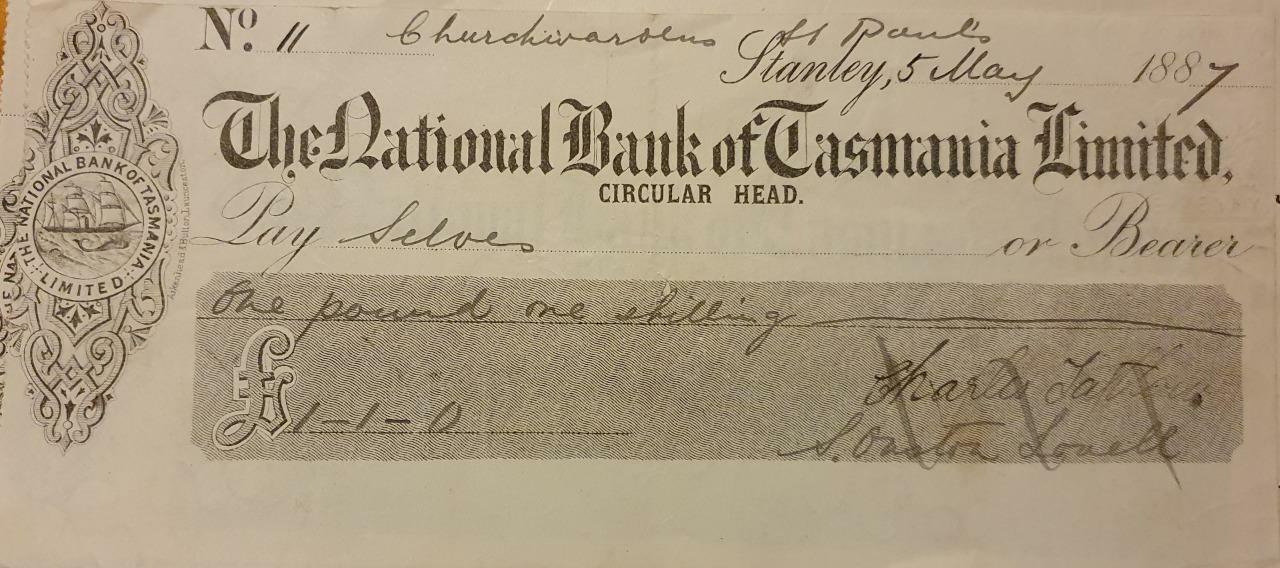 No. 11 Churchwardens St Paul's
Stanley, 5 May 1887
The National Bank of Tasmania Limited,
CIRCULAR HEAD.
Pay Selves or Bearer
One pound one shilling
£1-1-0
Charles Tatlow.
S. Ouston Lovell
THE NATIONAL BANK OF TASMANIA LIMITED
Aikenhead & Button, Launceston